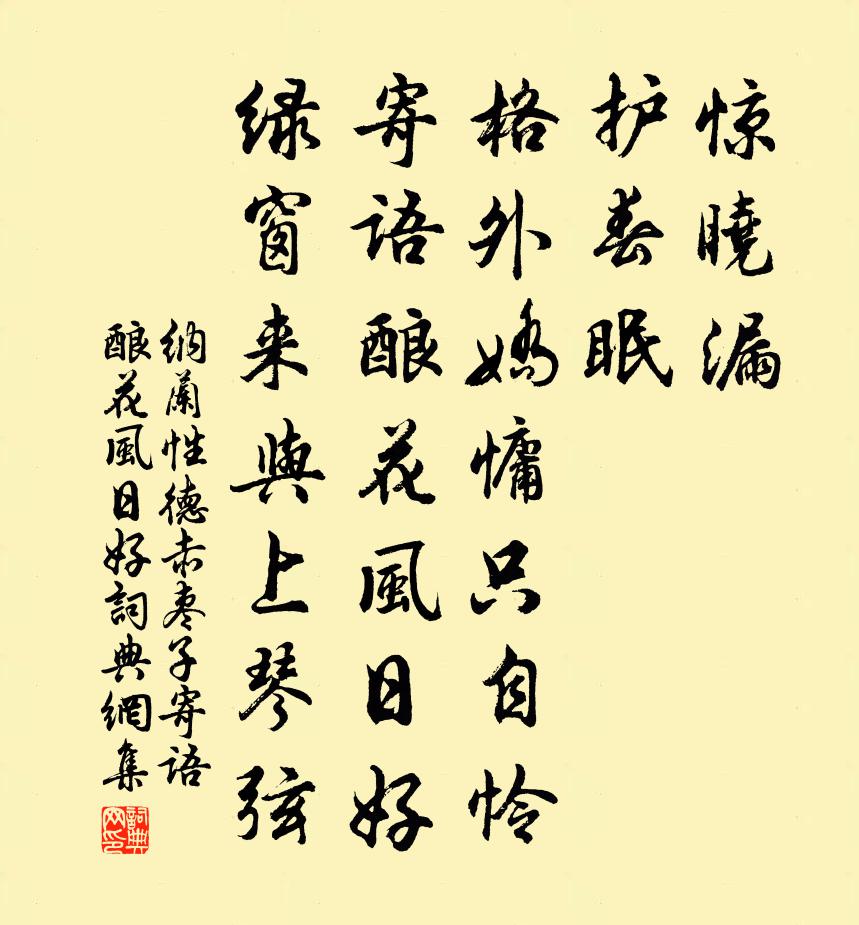 惊曉漏
护春眠
格外嬌慵只自怜
寄语酿花風日好
绿窗来與上琴弦
纳蘭性德赤枣子寄语
酿花風日好詞典網集
詞典网印